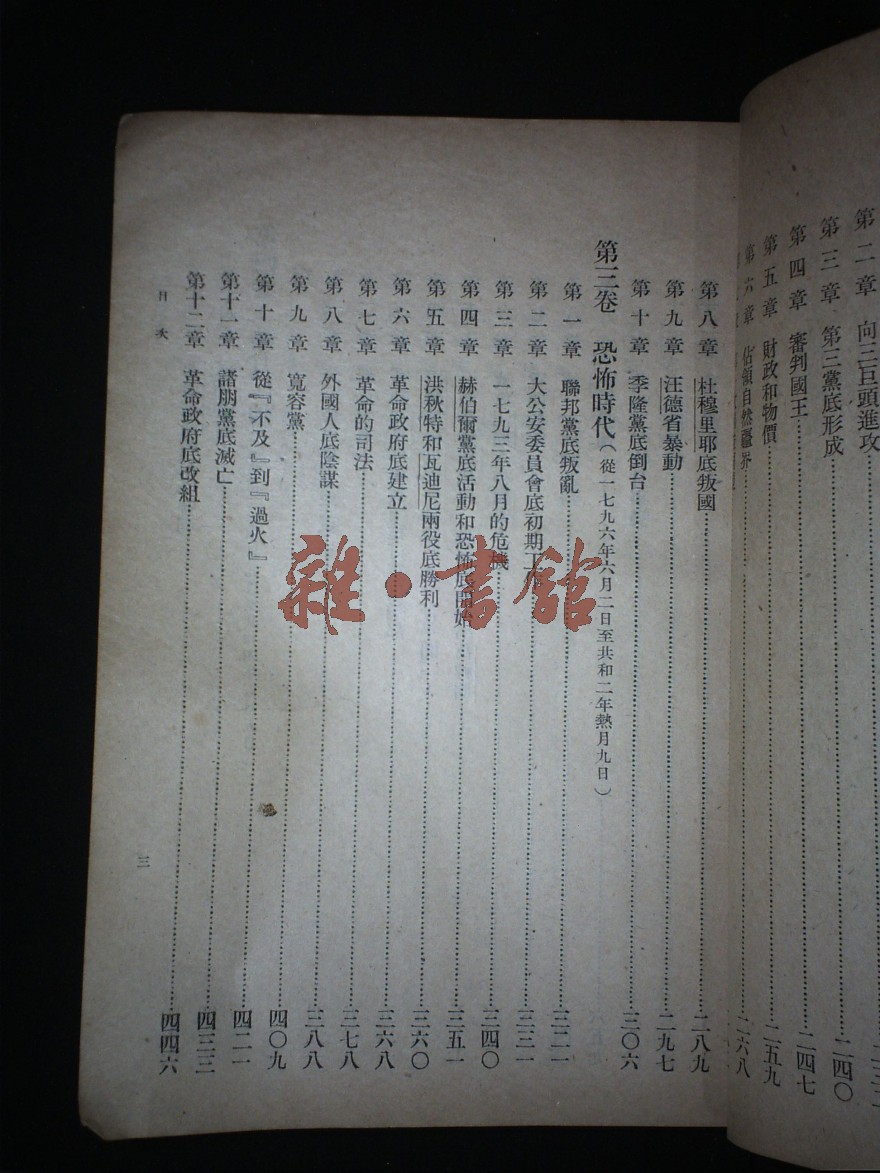 第二章 向三巨頭進攻
第三章 第三黨底形成 二四〇
第四章 審判國王 二四七
第五章 財政和物價 二五九
第六章 佔領自然疆界 二六八
第八章 杜穆里耶底叛國 二八九
第九章 汪德省暴動 二九七
第十章 季隆黨底倒台 三〇六
第三卷 恐怖時代(從一七九六年六月二日至共和二年熱月九日)
第一章 聯邦黨底叛亂 三二一
第二章 大公安委員會底初期工作 三三一
第三章 一七九三年八月的危機 三四〇
第四章 赫伯爾黨底活動和恐怖底開始 三五一
第五章 洪秋特和瓦迪尼兩役底勝利 三六〇
第六章 革命政府底建立 三六八
第七章 革命的司法 三七八
第八章 外國人底陰謀 三八八
第九章 寬容黨 四〇九
第十章 從『不及』到『過火』 四二一
第十一章 諸朋黨底滅亡 四三三
第十二章 革命政府底改組 四四六
目次
三
雜·書館